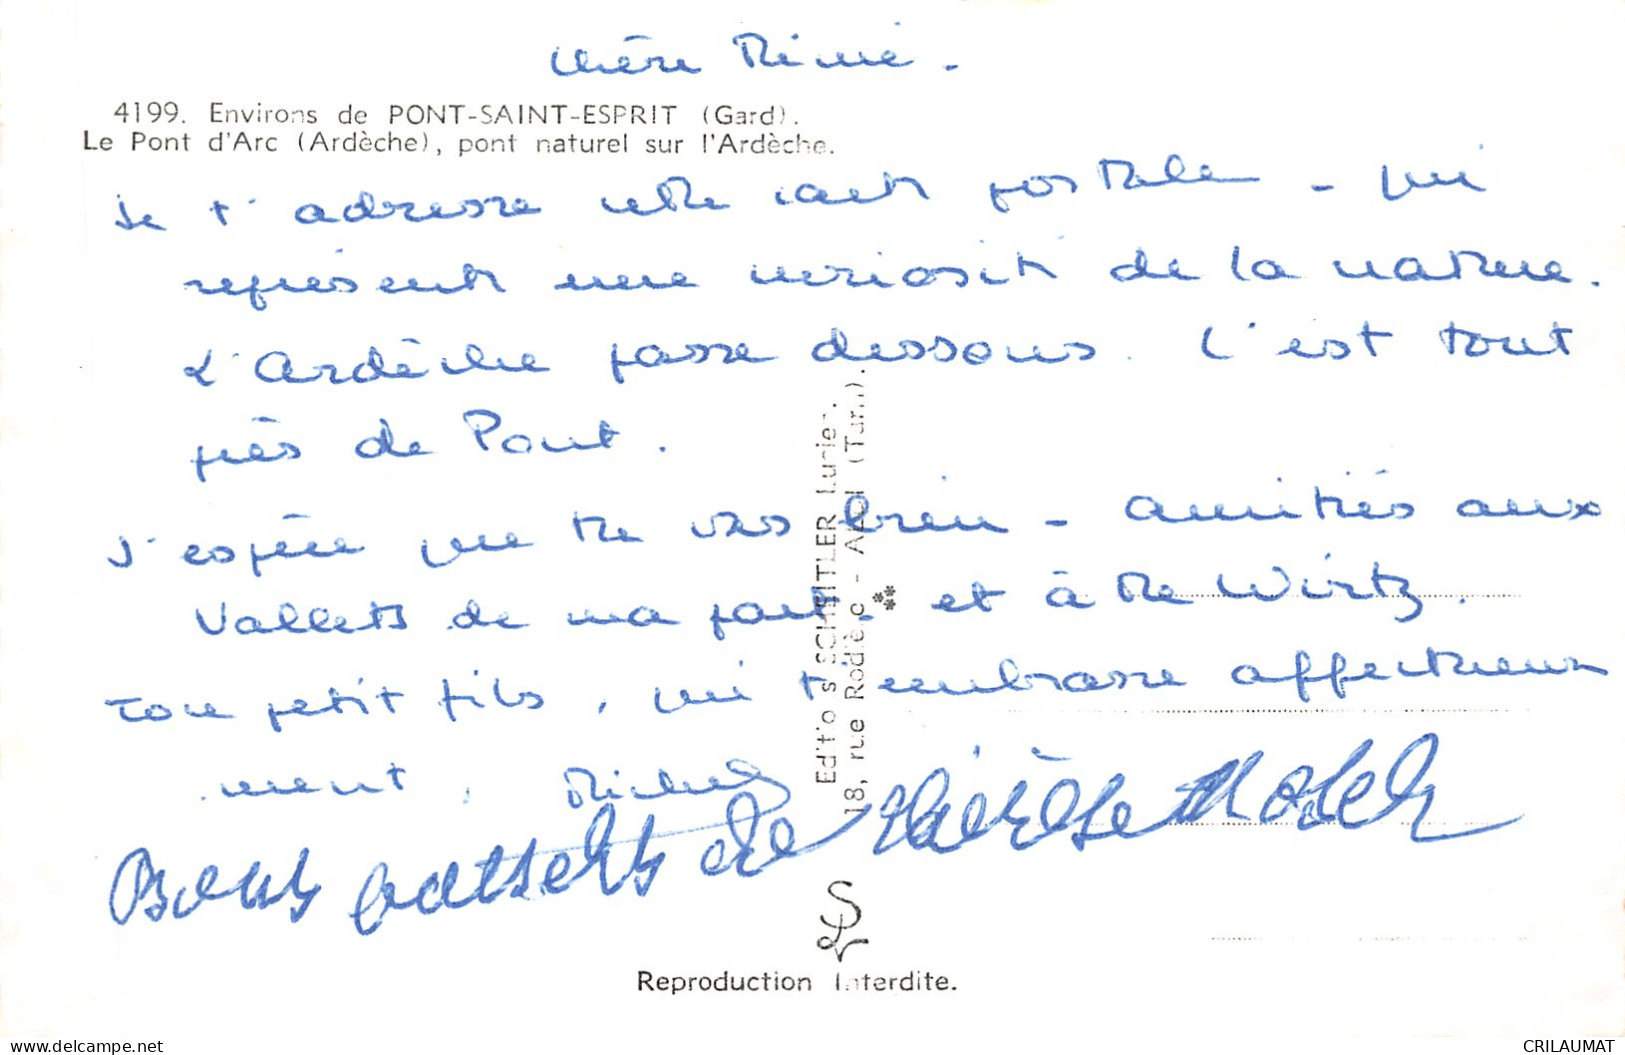 Chère Mimi.
4199. Environs de PONT-SAINT-ESPRIT (Gard).
Le Pont d'Arc (Ardèche), pont naturel sur l'Ardèche.
Je t'adresse cette carte postale - qui
représente une curiosité de la nature.
L'Ardèche passe dessous. C'est tout
près de Pont.
J'espère que tu vas bien - amitiés aux
Vallets de ma part. et à Me Wirtz.
Ton petit fils, qui t'embrasse affectueuse
ment, Michel
Bons baisers de Thérèse
Editions SCHMITLER Lucien.
18, rue Rodière - (Tarn).
Reproduction Interdite.
www.delcampe.net
CRILAUMAT